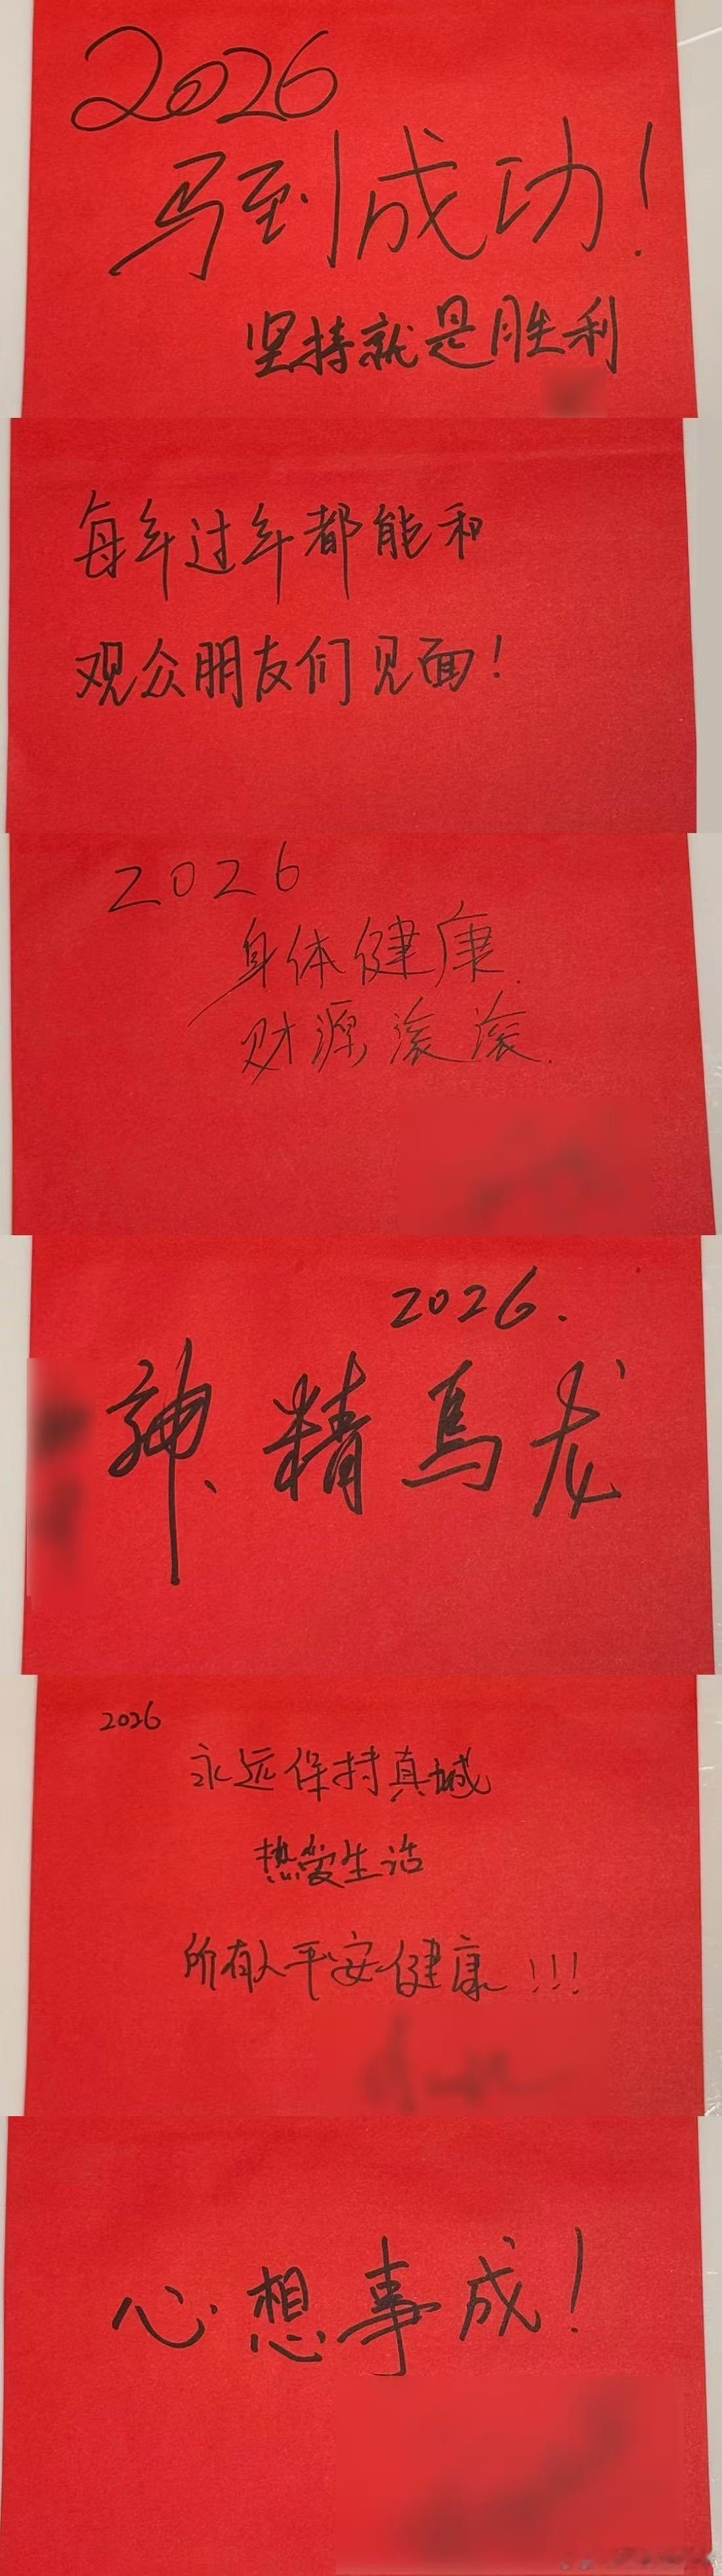 2026
马到成功!
坚持就是胜利
每年过年都能和
观众朋友们见面!
2026
身体健康
财源滚滚.
2026.
神精馬龙
2026
永远保持真诚
热爱生活
所有人平安健康!!!
心想事成!